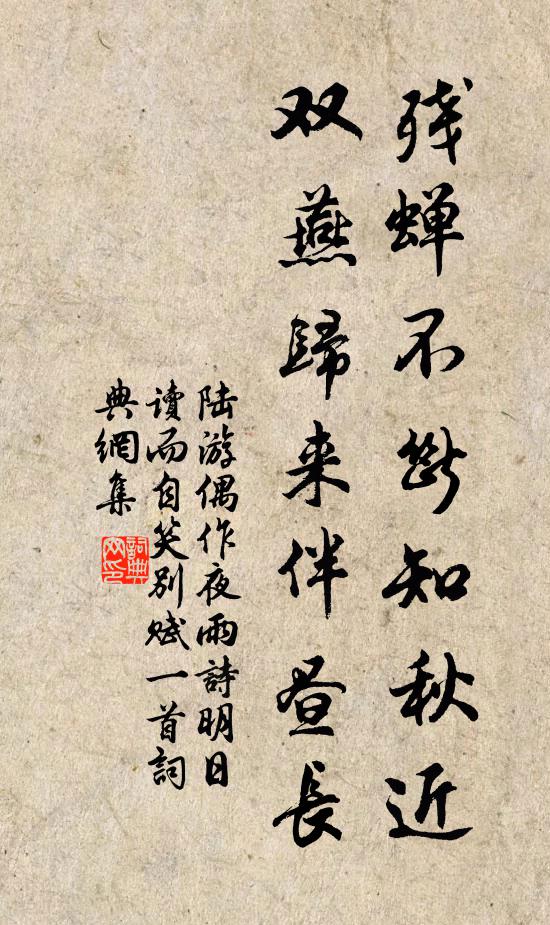 残蝉不断知秋近
双燕歸来伴昼長
陆游偶作夜雨詩明日
讀而自笑别赋一首詞
典網集
詞典
网印